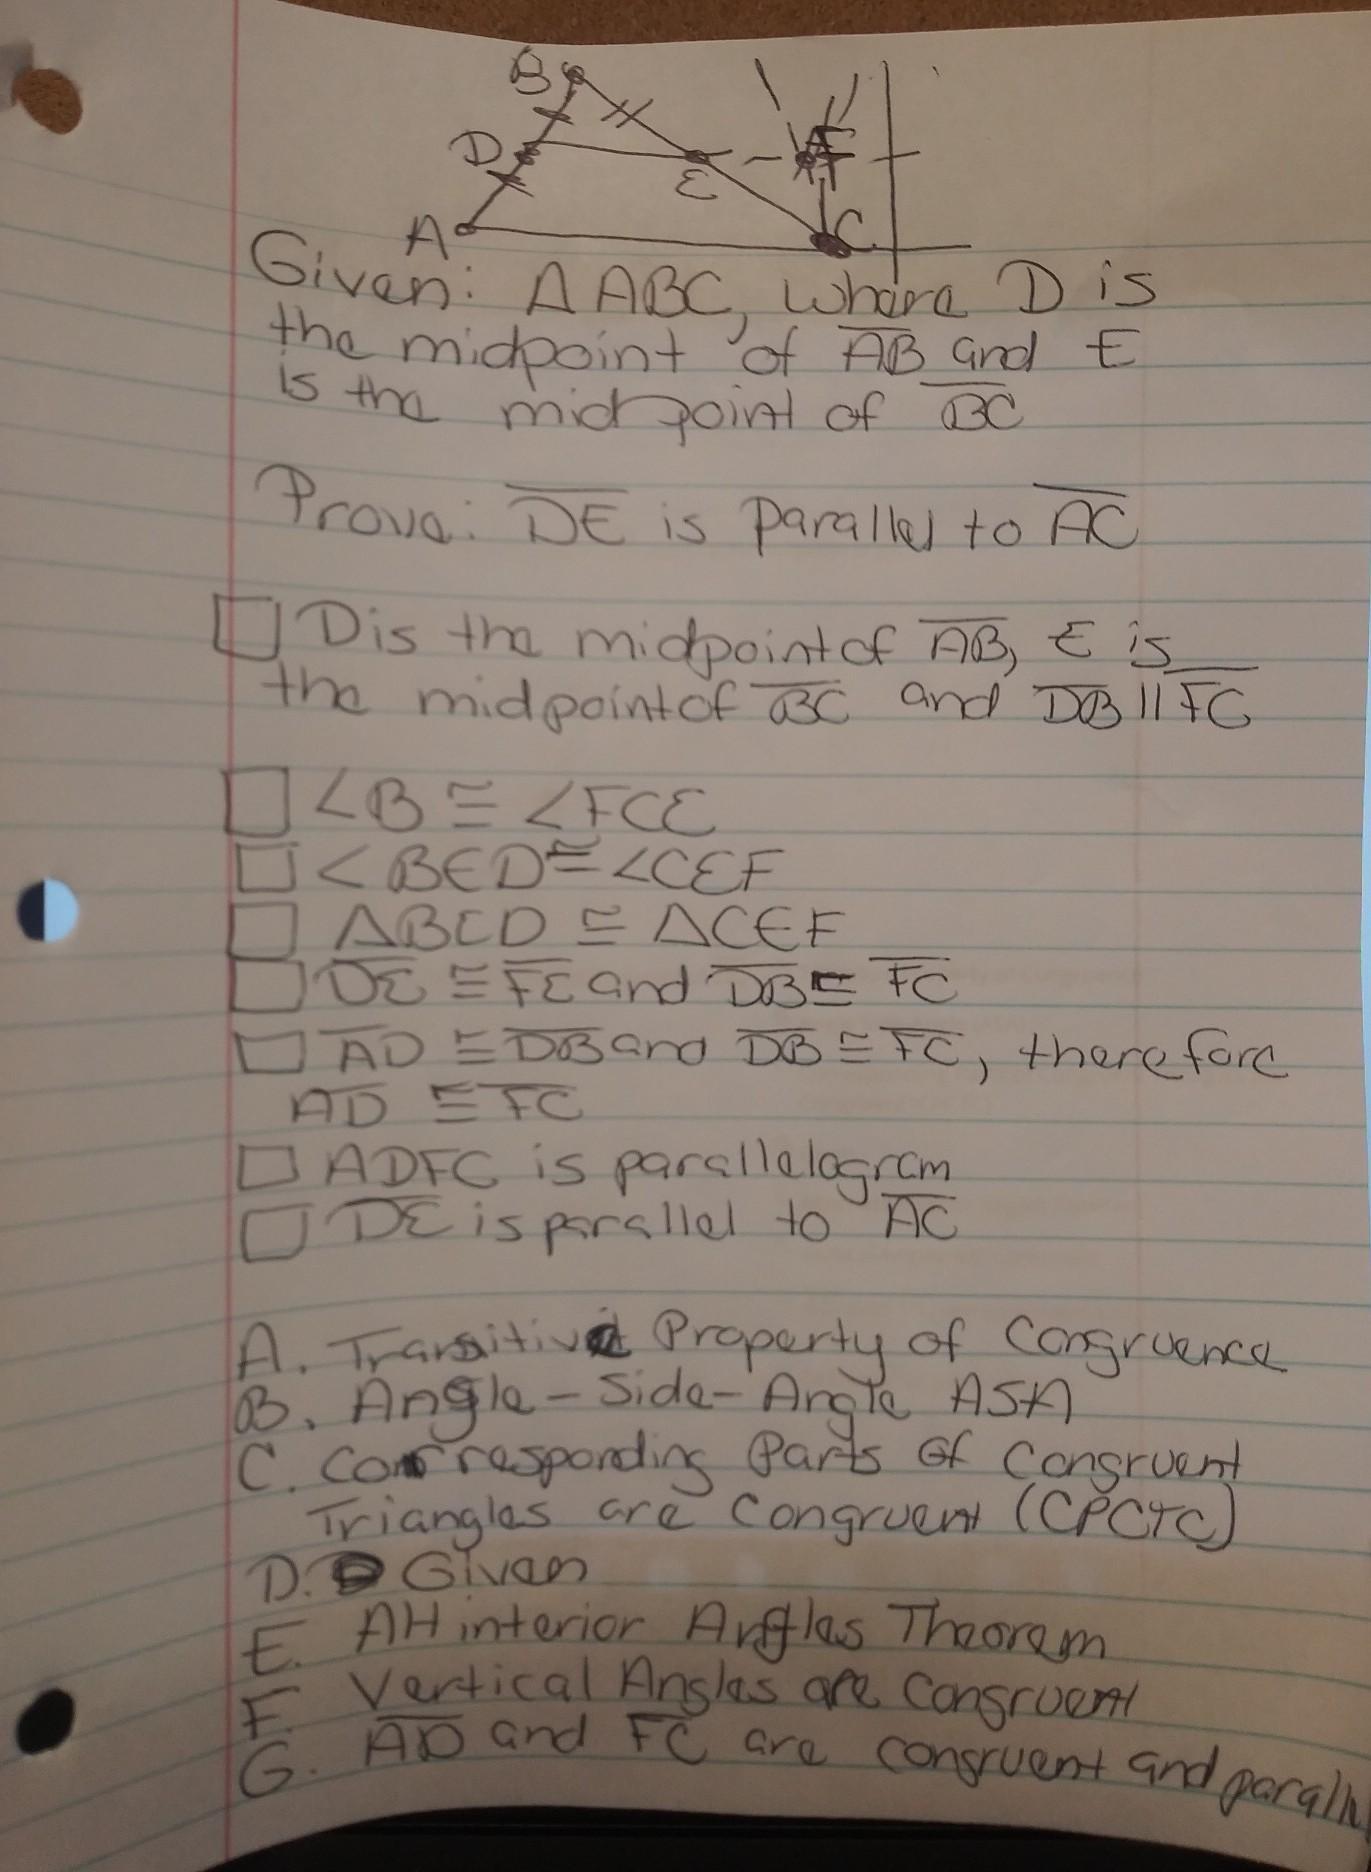 B
D
E
F
A
C
Given: △ABC, where D is
the midpoint of AB and E
is the midpoint of BC
Prove: DE is parallel to AC
D is the midpoint of AB, E is
the midpoint of BC and DB || FC
∠B ≅ ∠FCE
∠BED ≅ ∠CEF
△BED ≅ △CEF
DE ≅ FE and DB ≅ FC
AD ≅ DB and DB ≅ FC, therefore
AD ≅ FC
ADFC is parallelogram
DE is parallel to AC
A. Transitive Property of Congruence
B. Angle-Side-Angle ASA
C. Corresponding Parts Of Congruent
Triangles are Congruent (CPCTC)
D. Given
E. Alt interior Angles Theorem
F. Vertical Angles are Congruent
G. AD and FC are congruent and